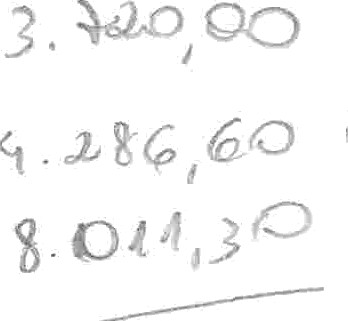 3.720,00
4.286,60
8.011,30